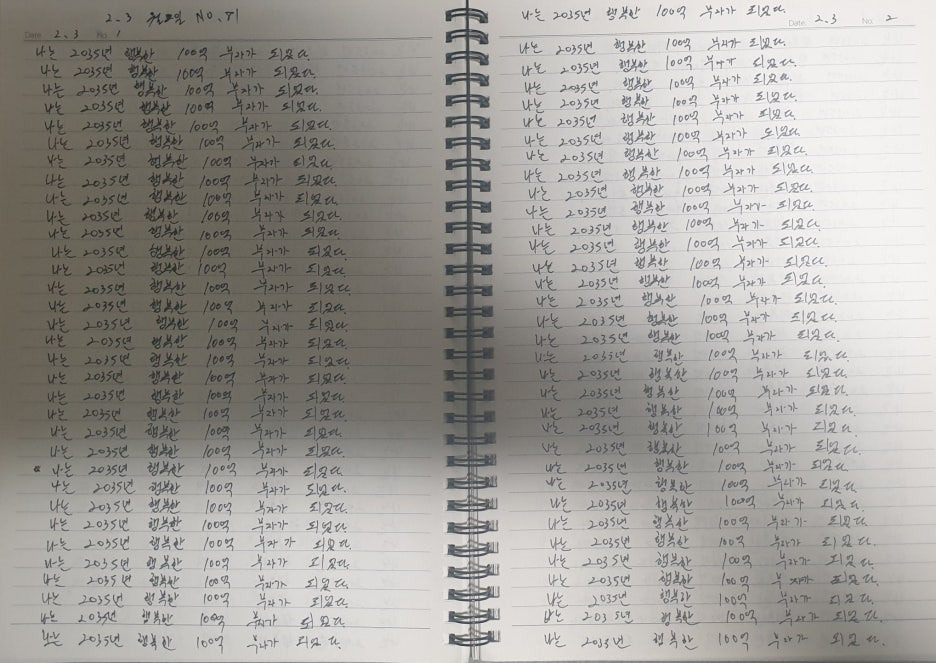 2.3 월요일 NO.
Date. 2.3 No. 1
나는 2035년 행복한 100억 부자가 되었다.
나는 2035년 행복한 100억 부자가 되었다.
나는 2035년 행복한 100억 부자가 되었다.
나는 2035년 행복한 100억 부자가 되었다.
나는 2035년 행복한 100억 부자가 되었다.
나는 2035년 행복한 100억 부자가 되었다.
나는 2035년 행복한 100억 부자가 되었다.
나는 2035년 행복한 100억 부자가 되었다.
나는 2035년 행복한 100억 부자가 되었다.
나는 2035년 행복한 100억 부자가 되었다.
나는 2035년 행복한 100억 부자가 되었다.
나는 2035년 행복한 100억 부자가 되었다.
나는 2035년 행복한 100억 부자가 되었다.
나는 2035년 행복한 100억 부자가 되었다.
나는 2035년 행복한 100억 부자가 되었다.
나는 2035년 행복한 100억 부자가 되었다.
나는 2035년 행복한 100억 부자가 되었다.
나는 2035년 행복한 100억 부자가 되었다.
나는 2035년 행복한 100억 부자가 되었다.
나는 2035년 행복한 100억 부자가 되었다.
나는 2035년 행복한 100억 부자가 되었다.
나는 2035년 행복한 100억 부자가 되었다.
나는 2035년 행복한 100억 부자가 되었다.
나는 2035년 행복한 100억 부자가 되었다.
나는 2035년 행복한 100억 부자가 되었다.
나는 2035년 행복한 100억 부자가 되었다.
나는 2035년 행복한 100억 부자가 되었다.
나는 2035년 행복한 100억 부자가 되었다.
나는 2035년 행복한 100억 부자가 되었다.
나는 2035년 행복한 100억 부자가 되었다.
나는 2035년 행복한 100억 부자가 되었다.
나는 2035년 행복한 100억 부자가 되었다.
나는 2035년 행복한 100억 부자가 되었다.
나는 2035년 행복한 100억 부자가 되었다.
Date. 2.3 No. 2
나는 2035년 행복한 100억 부자가 되었다.
나는 2035년 행복한 100억 부자가 되었다.
나는 2035년 행복한 100억 부자가 되었다.
나는 2035년 행복한 100억 부자가 되었다.
나는 2035년 행복한 100억 부자가 되었다.
나는 2035년 행복한 100억 부자가 되었다.
나는 2035년 행복한 100억 부자가 되었다.
나는 2035년 행복한 100억 부자가 되었다.
나는 2035년 행복한 100억 부자가 되었다.
나는 2035년 행복한 100억 부자가 되었다.
나는 2035년 행복한 100억 부자가 되었다.
나는 2035년 행복한 100억 부자가 되었다.
나는 2035년 행복한 100억 부자가 되었다.
나는 2035년 행복한 100억 부자가 되었다.
나는 2035년 행복한 100억 부자가 되었다.
나는 2035년 행복한 100억 부자가 되었다.
나는 2035년 행복한 100억 부자가 되었다.
나는 2035년 행복한 100억 부자가 되었다.
나는 2035년 행복한 100억 부자가 되었다.
나는 2035년 행복한 100억 부자가 되었다.
나는 2035년 행복한 100억 부자가 되었다.
나는 2035년 행복한 100억 부자가 되었다.
나는 2035년 행복한 100억 부자가 되었다.
나는 2035년 행복한 100억 부자가 되었다.
나는 2035년 행복한 100억 부자가 되었다.
나는 2035년 행복한 100억 부자가 되었다.
나는 2035년 행복한 100억 부자가 되었다.
나는 2035년 행복한 100억 부자가 되었다.
나는 2035년 행복한 100억 부자가 되었다.
나는 2035년 행복한 100억 부자가 되었다.
나는 2035년 행복한 100억 부자가 되었다.
나는 2035년 행복한 100억 부자가 되었다.
나는 2035년 행복한 100억 부자가 되었다.